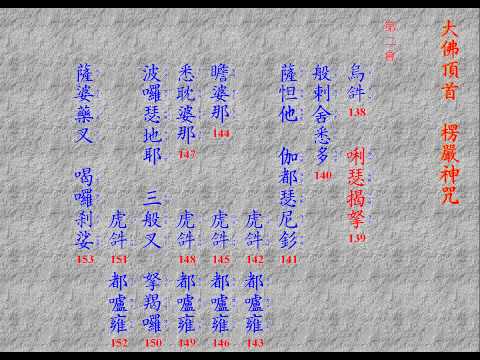 大佛頂首 楞嚴神咒
第二會
烏𤙖 138 唎瑟揭拏 139
般剌舍悉多 140
薩怛他 伽都瑟尼釤 141
虎𤙖 142 都嚧雍 143
瞻婆那 144 虎𤙖 145 都嚧雍 146
悉耽婆那 147 虎𤙖 148 都嚧雍 149
波囉瑟地耶 三般叉 拏羯囉 150
虎𤙖 151 都嚧雍 152
薩婆藥叉 喝囉刹娑 153